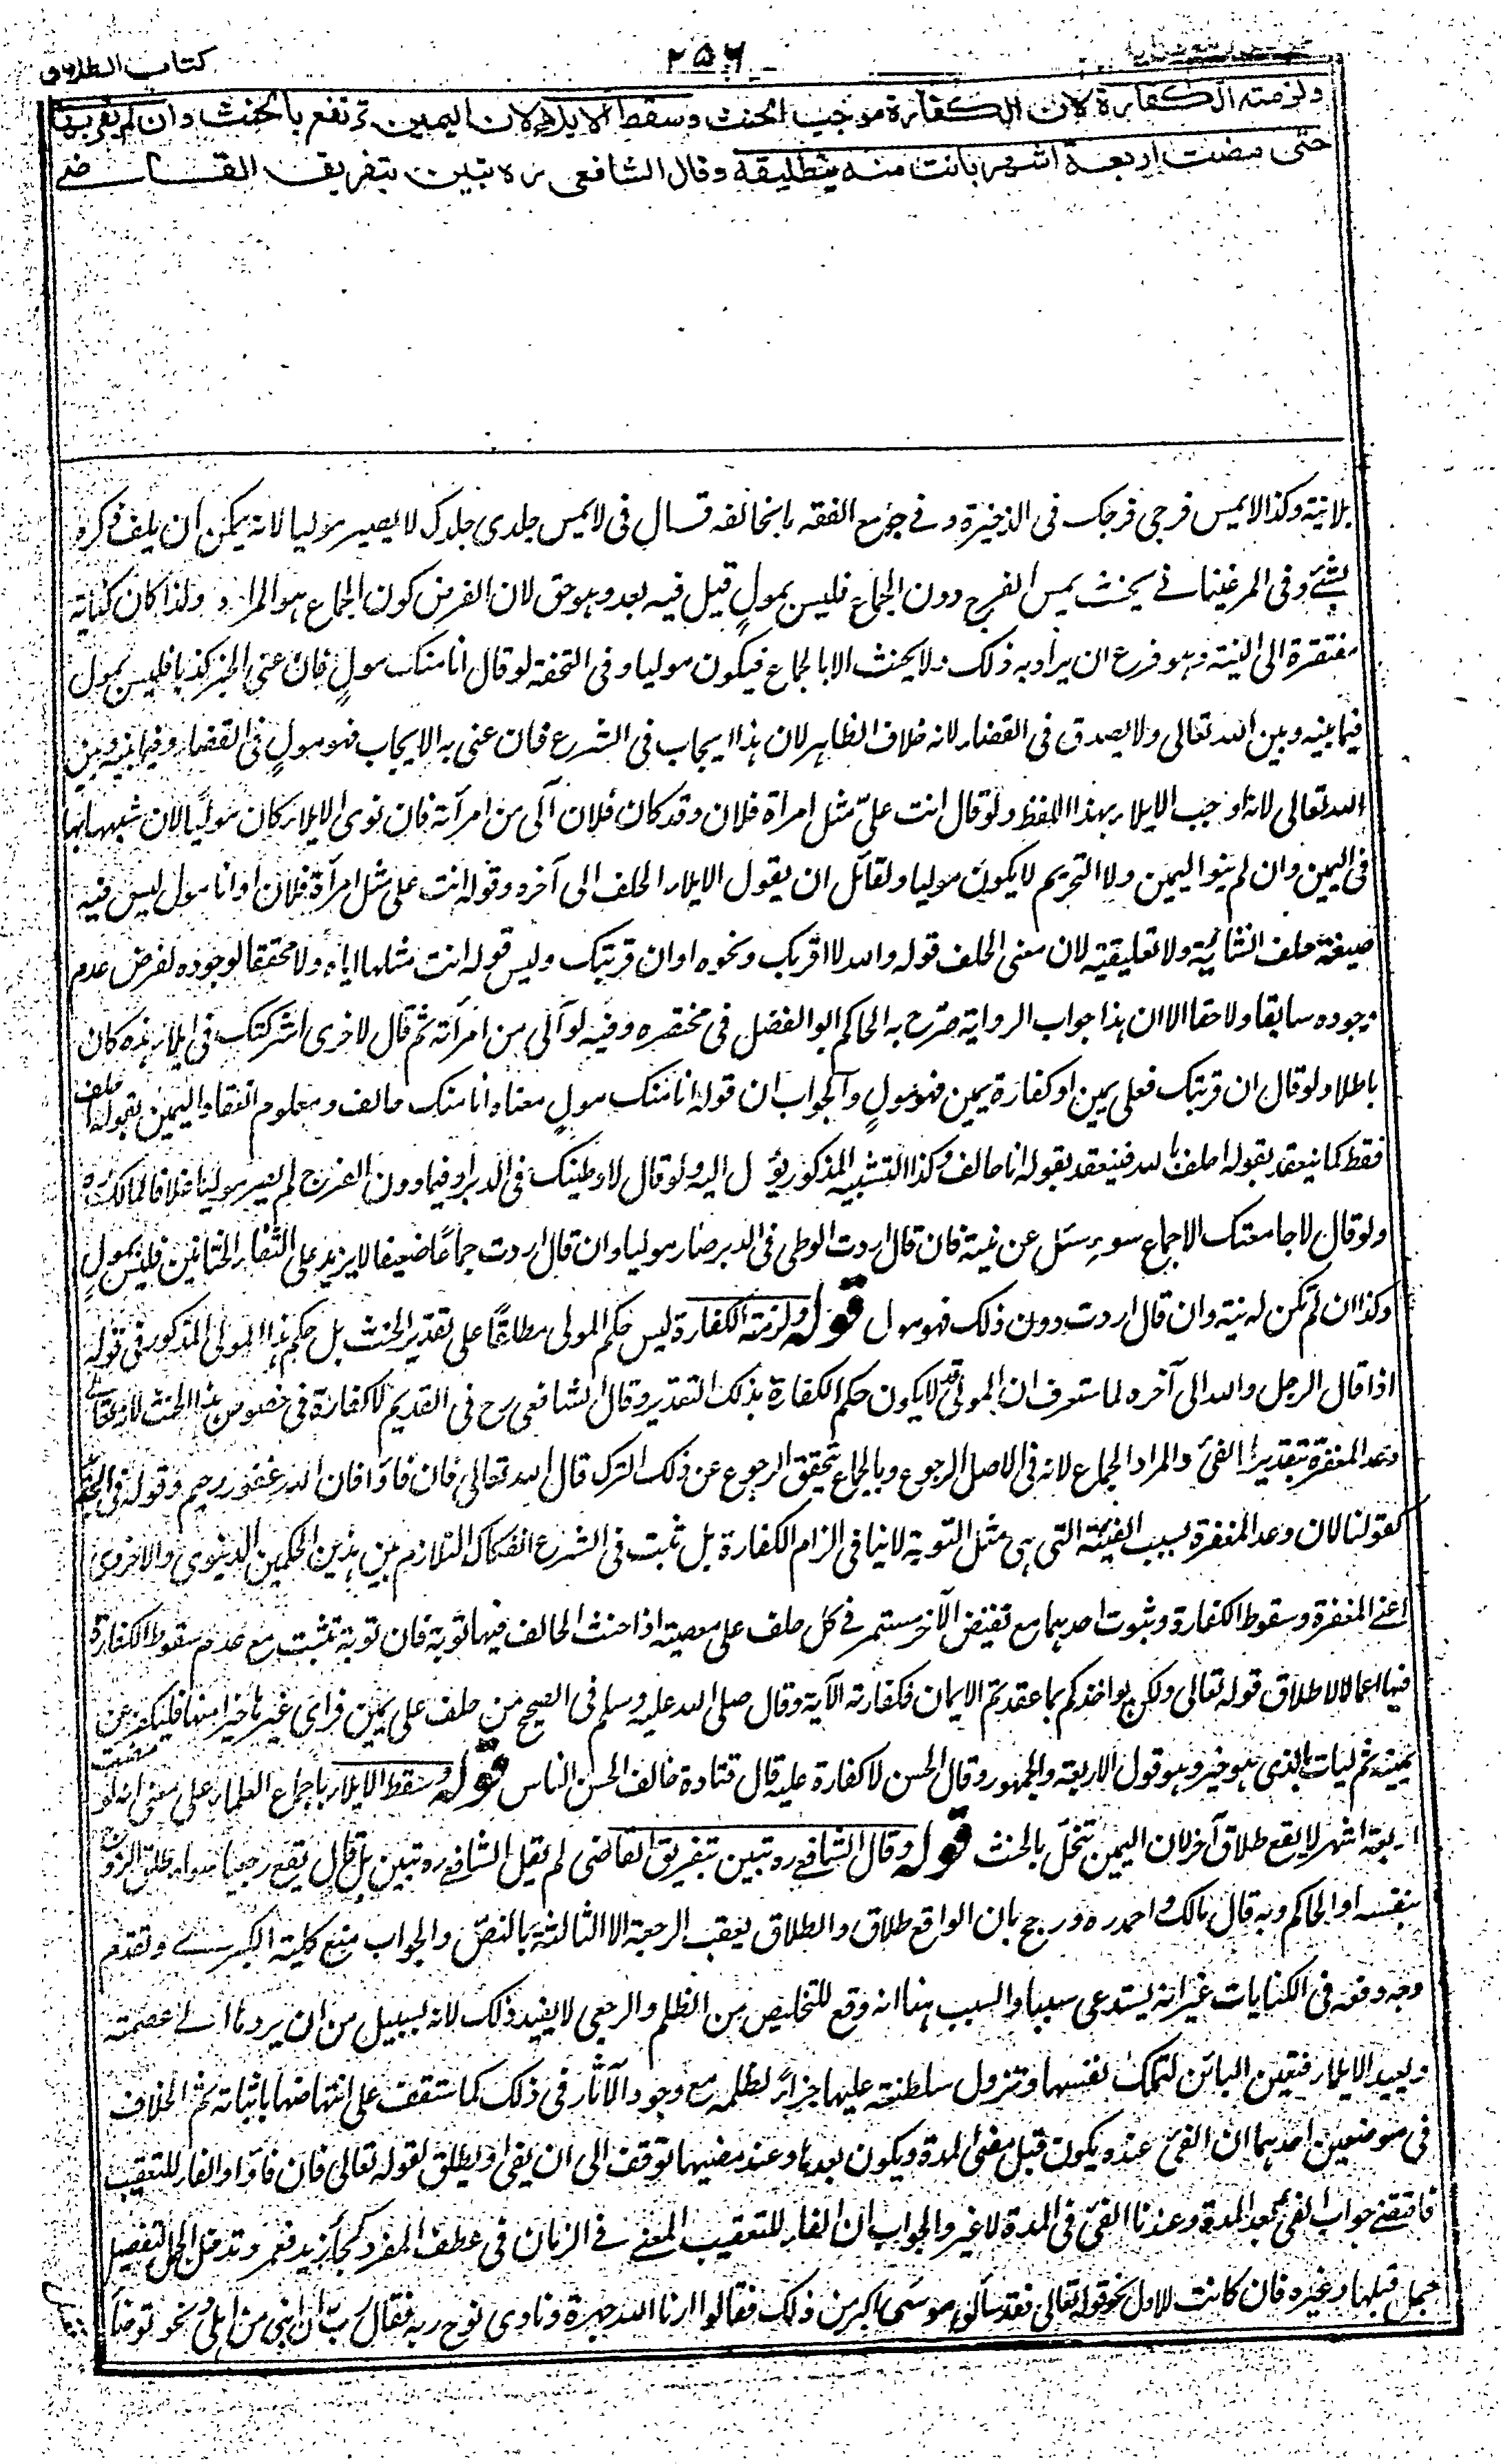 كتاب الطلاق
٢٥٦
ولزمته الكفارة لان الكفارة موجب الحنث وسقط الايلاء لان اليمين ترتفع بالحنث وان لم يقربها
حتى مضت اربعة اشهر بانت منه بتطليقة وقال الشافعى ره تبين بتفريق القاضے
بلا نية وكذا لا يمس فرجى فرجك فى الذخيرة وفے جوامع الفقه ما يخالفه قال فى لا يمس جلدى جلدك لا يصير موليا لانه يمكن ان يلف ذكره
بشئ وفى المرغينانے يحنث بمس الفرج دون الجماع فليس بمولٍ قيل فيه بعد وهو حق لان الفرض كون الجماع هو المراد ولذا كان كناية
مفتقرة الى النية وهو فرع ان يراد به ذلك ولا يحنث الا بالجماع فيكون موليا وفى التحفة لو قال انا منك مولٍ فان عنى الخبر كذبا فليس بمول
فيما بينه وبين الله تعالى ولا يصدق فى القضاء لانه خلاف الظاهر لان هذا ايجاب فى الشرع فان عنى به الايجاب فهو مولٍ فى القضاء وفيما بينه وبين
الله تعالى لانه اوجب الايلاء بهذا اللفظ ولو قال انت علىّ مثل امراة فلان وقد كان فلان آلى من امرأته فان نوى الايلاء كان موليًا لان شبهها بها
فى اليمين وان لم ينو اليمين ولا التحريم لا يكون موليا ولقائل ان يقول الايلاء الحلف الى آخره وقوله انت على مثل امرأة فلان او انا مول ليس فيه
صيغة حلف انشائية ولا تعليقية لان معنى الحلف قوله والله لا اقربك ونحوه او ان قربتك وليس قوله انت مثلها اياه ولا محققا لوجوده لفرض عدم
وجوده سابقا ولاحقا الا ان هذا جواب الرواية صرح به الحاكم ابو الفضل فى مختصره وفيه لو آلى من امرأته ثم قال لاخرى اشركتك فى ايلاء هذه كان
باطلا ولو قال ان قربتك فعلى يمين او كفارة يمين فهو مولٍ والجواب ان قوله انا منك مولٍ معناه انا منك حالف ومعلوم انعقاد اليمين بقوله احلف
فقط كما ينعقد بقوله احلف بالله فينعقد بقوله انا حالف وكذا التشبيه المذكور يؤل اليه ولو قال لا وطيتك فى الدبر او فيما دون الفرج لم يصر موليا خلافا لمالك ره
ولو قال لا جامعتك الا جماع سوء سئل عن نيته فان قال اردت الوطى فى الدبر صار موليا وان قال اردت جماعًا ضعيفا لا يزيد على التقاء الختانين فليس بمولٍ
وكذا ان لم تكن له نية وان قال اردت دون ذلك فهو مول قوله ولزمته الكفارة ليس حكم المولى مطلقًا على تقدير الحنث بل حكم هذا المولى المذكور فى قوله
اذا قال الرجل والله الى آخره لما ستعرف ان المولى قد لا يكون حكم الكفارة بذلك التقدير وقال الشافعى رح فى القديم لا كفارة فى خصوص هذا الحنث لانه تعالے
وعد المغفرة بتقدير الفئ والمراد الجماع لانه فى الاصل الرجوع وبالجماع تحقق الرجوع عن ذلك الترك قال الله تعالى فان فاؤا فان الله غفور رحيم وقوله فى الجديد
كقولنا لان وعد المغفرة بسبب الفيئة التى هى مثل التوبة لا ينافى الزام الكفارة بل ثبت فى الشرع انفكاك التلازم بين هذين الحكمين الدنيوى والاخروى
اعنے المغفرة وسقوط الكفارة وثبوت احدهما مع نقيض الآخر مستمر فے كل حلف على معصية اذا حنث الحالف فيها توبة فان توبة تثبت مع عدم سقوط الكفارة
فيها اعمالا لاطلاق قوله تعالى ولكن يواخذكم بما عقدتم الايمان فكفارته الآية وقال صلى الله عليه وسلم فى الصحيح من حلف على يمين فراى غيرها خيرا منها فليكفر عن
يمينه ثم ليات بالذى هو خير وهو قول الاربعة والجمهور وقال الحسن لا كفارة عليه قال قتادة خالف الحسن الناس قوله وسقط الايلاء باجماع العلماء على معنى انه لو مضت
اربعة اشهر لا يقع طلاق آخر لان اليمين تنحل بالحنث قوله وقال الشافعے ره تبين بتفريق القاضى لم يقل الشافعے ره تبين بل قال يقع رجعيا سواء طلق الزوج
بنفسه او الحاكم وبه قال مالك واحمد ره ورجح بان الواقع طلاق والطلاق يعقب الرجعة الا الثالثة بالنص والجواب منع كلية الكبرے وتقدم
وجه دفعه فى الكنايات غير انه يستدعى سببا والسبب هنا انه وقع للتخليص من الظلم والرجعى لا يفيد ذلك لانه بسبيل من ان يردها الے عصمته
ويعيد الايلاء فتعين البائن لتملك نفسها وتزول سلطنته عليها جزاءً لظلمه مع وجود الآثار فى ذلك كما ستقف على انتهاضها باثباته ثم الخلاف
فى موضعين احدهما ان الفئ عنده يكون قبل مضى المدة ويكون بعدها وعند مضيها توقف الى ان يفئ او يطلق لقوله تعالى فان فاؤا والفاء للتعقيب
فاقتضے جواب الفئ بعد المدة وعندنا الفئ فى المدة لا غير والجواب ان الفاء للتعقيب المعنے فے الزمان فى عطف المفرد كجاء زيد فعمرو وتدخل الجمل لتفصيل
مجمل قبلها وغيره فان كانت للاول نحو قوله تعالى فقد سألوا موسى اكبر من ذلك فقالوا ارنا الله جهرة ونادى نوح ربه فقال رب ان ابنى من اهلى ونحو توضأ